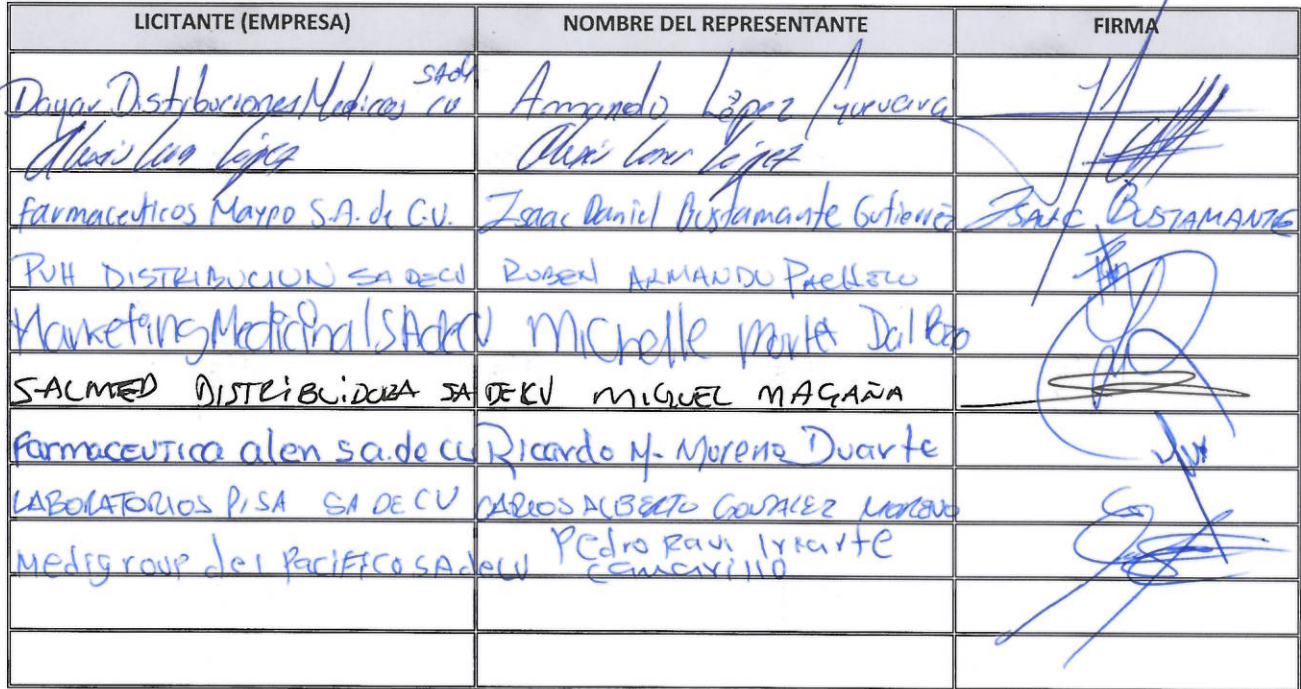 LICITANTE (EMPRESA) NOMBRE DEL REPRESENTANTE FIRMA
Dayar Distribuciones Medicas SA de CV Armando López Guevara
Alexis Luna López Alexis Luna López
farmaceuticos Maypo S.A. de C.V. Isaac Daniel Bustamante Gutierrez ISAAC BUSTAMANTE
PVH DISTRIBUCION SA DE CV RUBEN ARMANDO PACHECO
Marketing Medicinal SA de CV Michelle Dal Pozo
SALMED DISTRIBUIDORA SA DE CV MIGUEL MAGAÑA
Farmaceutica alen s.a. de cv Ricardo M. Moreno Duarte
LABORATORIOS PISA SA DE CV CARLOS ALBERTO GONZALEZ MORENO
Medigroup del Pacifico SA de CV Pedro Raul Iriarte
Camarillo